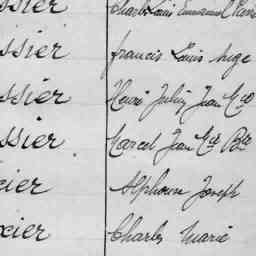 ssier Charles Louis Emmanuel Pierre
ssier Francis Louis Ange
ssier Henri Julien Jean Mie
ssier Marcel Jean Mie
xier Alphonse Joseph
xier Charles Marie